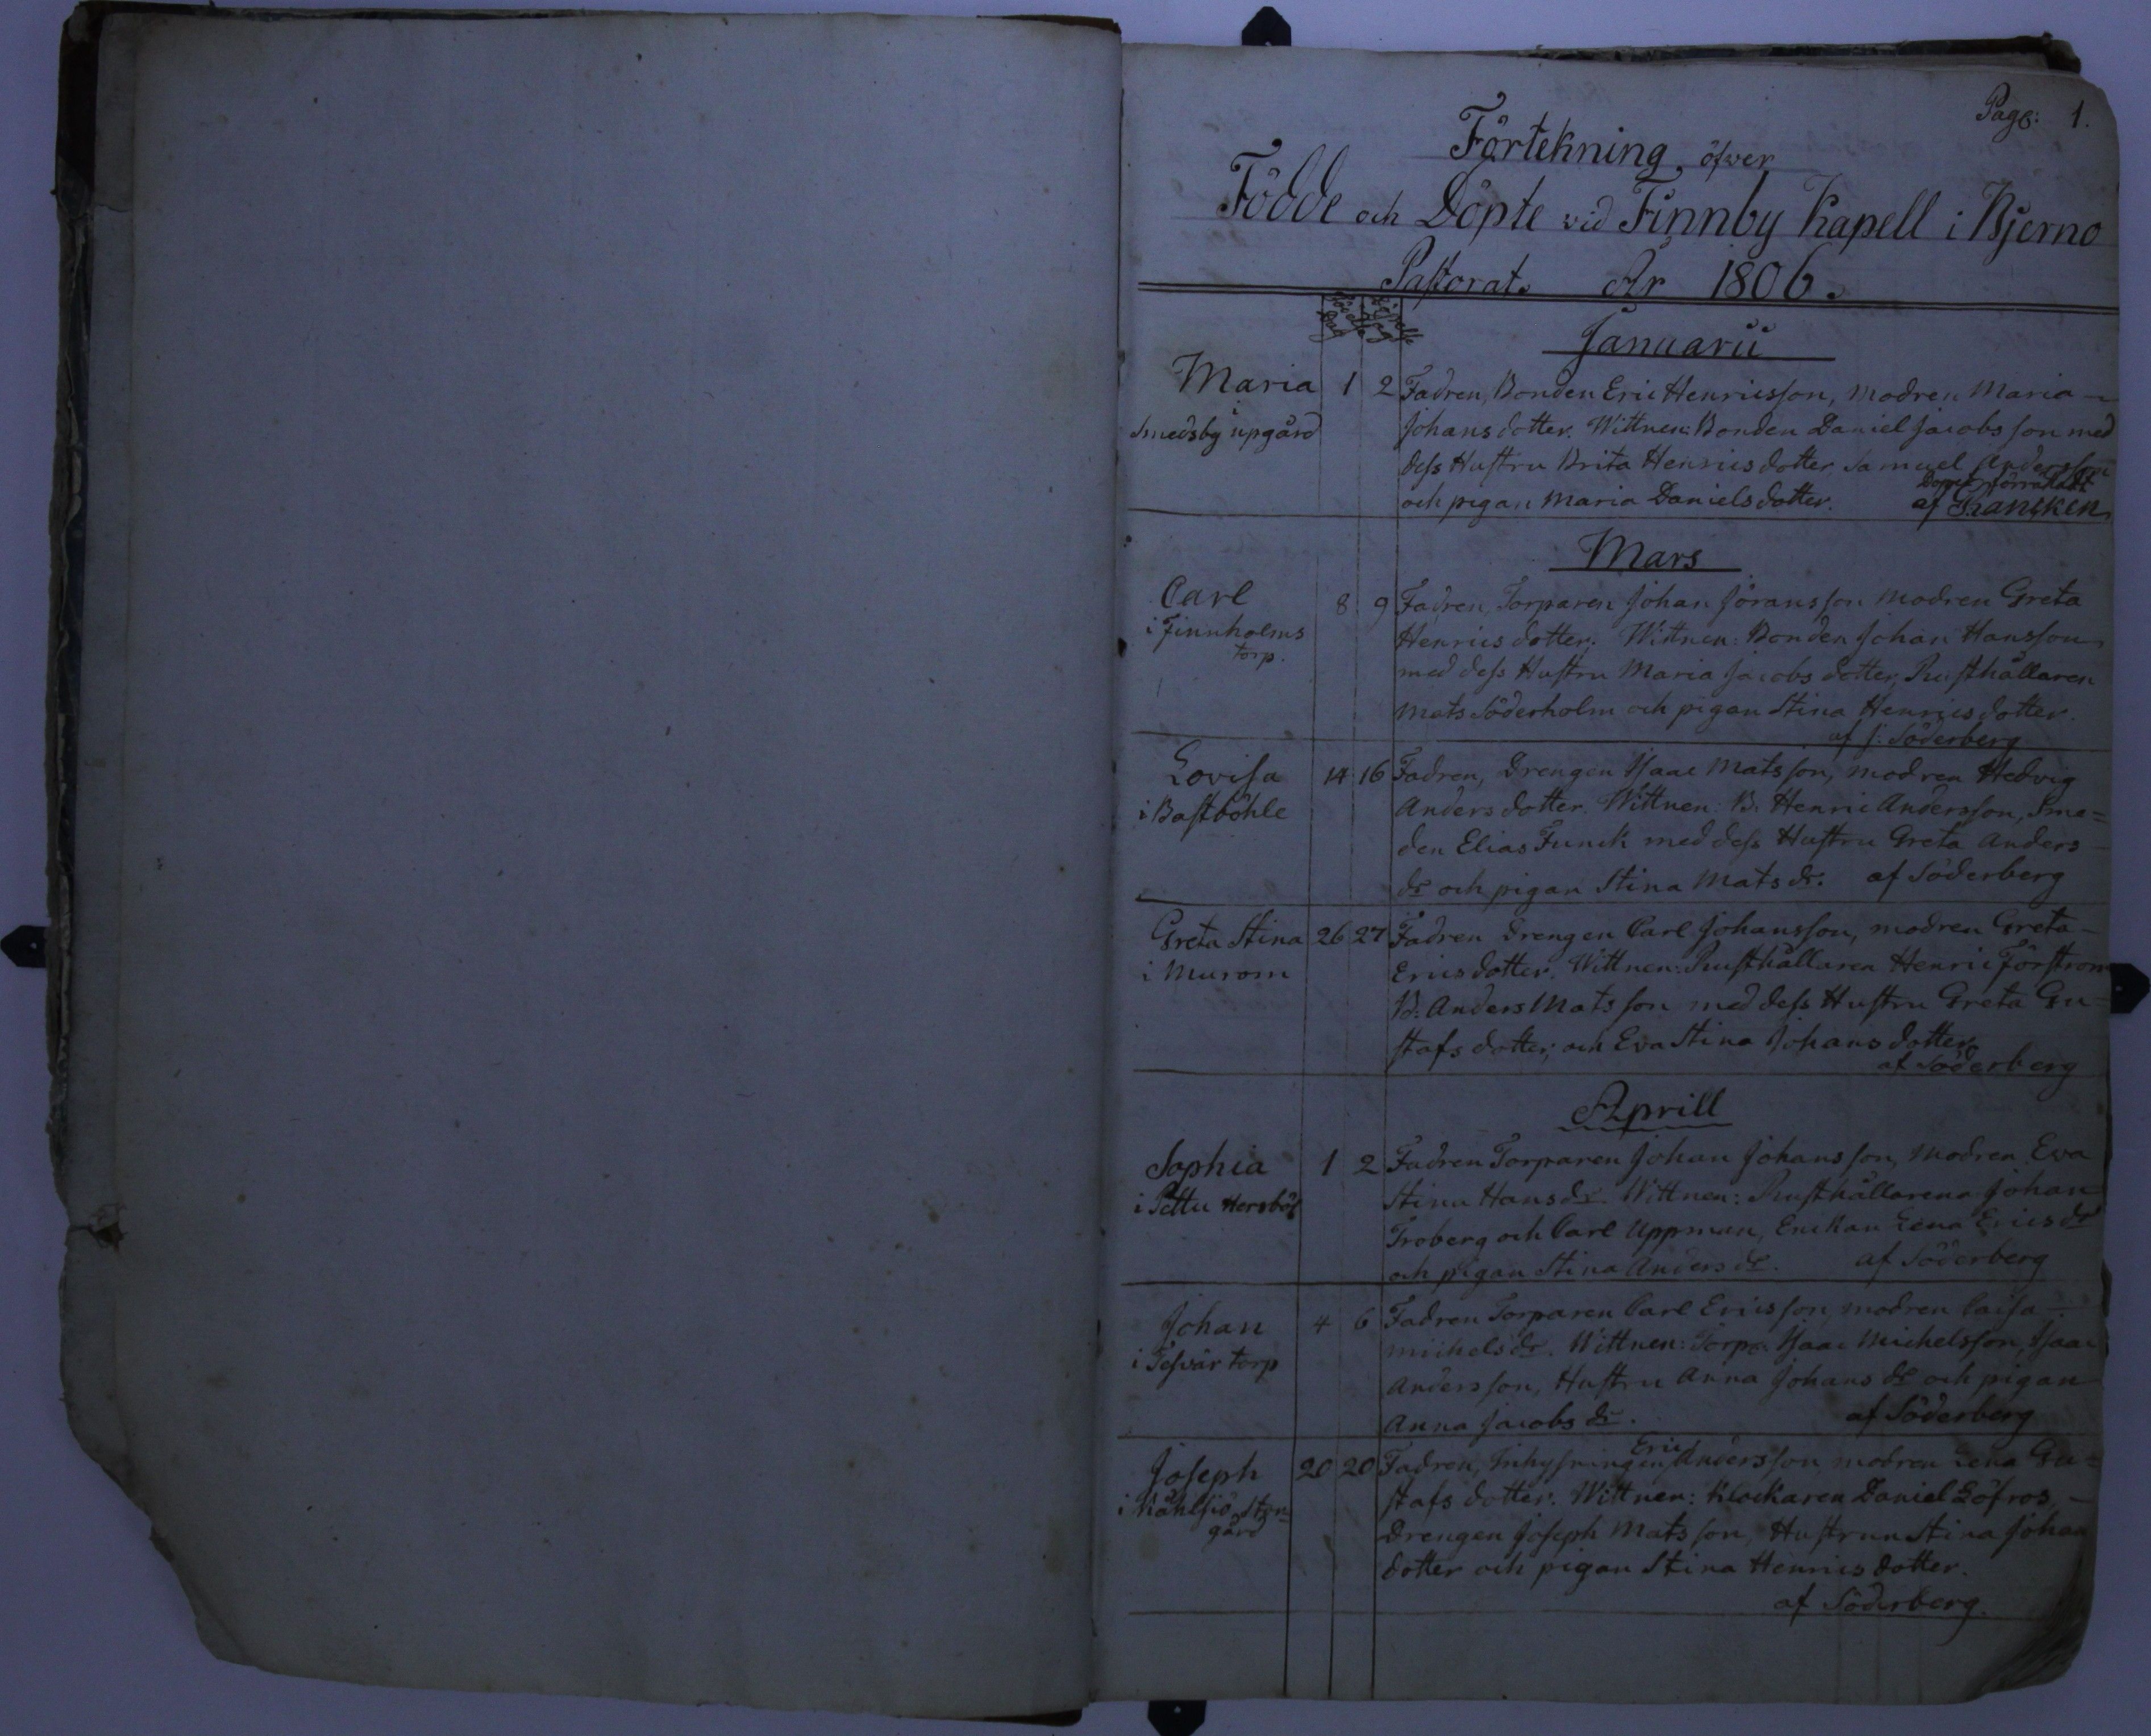 Pag: 1.
Förtekning öfver
Födde och Döpte vid Finnby Kapell i Bjerno
Pastorat. År 1806.
Födelse Dag Döpelse Dag
Januarii
Maria 1 2 Fadren, Bonden Eric Henricsson, modren Maria
i
Smedsby upgård Johansdotter. Wittnen: Bonden Daniel Jacobsson med
dess Hustru Brita Henricsdotter, Samuel Andersson
och pigan Maria Danielsdotter. Dopet förrättadt
af Krancken
Mars
Carl 8 9 Fadren, Torparen Johan Jöransson modren Greta
i Finnholms Henricsdotter. Wittnen: Bonden Johan Hansson
torp. med dess Hustru Maria Jacobsdotter, Rusthållaren
Mats Söderholm och pigan Stina Henricsdotter.
af J. Söderberg
Lovisa 14 16 Fadren, Drengen Isaac Matsson, modren Hedvig
i Bastböhle Andersdotter. Wittnen: B. Henric Andersson, Sme=
den Elias Funck med dess Hustru Greta Anders
dr och pigan Stina Matsdr. af Söderberg
Greta Stina 26 27 Fadren Drengen Carl Johansson, modren Greta
i Murom Ericsdotter. Wittnen: Rusthållaren Henric Förstrom
B. Anders Matsson med dess Hustru Greta Gu=
stafsdotter, och Eva Stina Johansdotter
af Söderberg
Aprill
Sophia 1 2 Fadren Torparen Johan Johansson, Modren Eva
i Pettu Hersböl Stina Hansdr Wittnen: Rusthållarena Johan
Troberg och Carl Uppman, Enckan Lena Ericsdr
och pigan Stina Andersdr. af Söderberg
Johan 4 6 Fadren Torparen Carl Ericsson, modren Caisa
i torp Michelsdr. Wittnen: Torp. Isaac Michelsson, Isaac
Andersson, Hustru Anna Johansdr och pigan
Anna Jacobsdr. af Söderberg
Joseph 20 20 Fadren, Inhysningen Eric Andersson, modren Lena Gu=
i Stor= stafsdotter. Wittnen: Klockaren Daniel Löfros
gård Drengen Joseph Matsson, Hustrun Stina Johan
dotter och pigan Stina Henricsdotter.
af Söderberg.